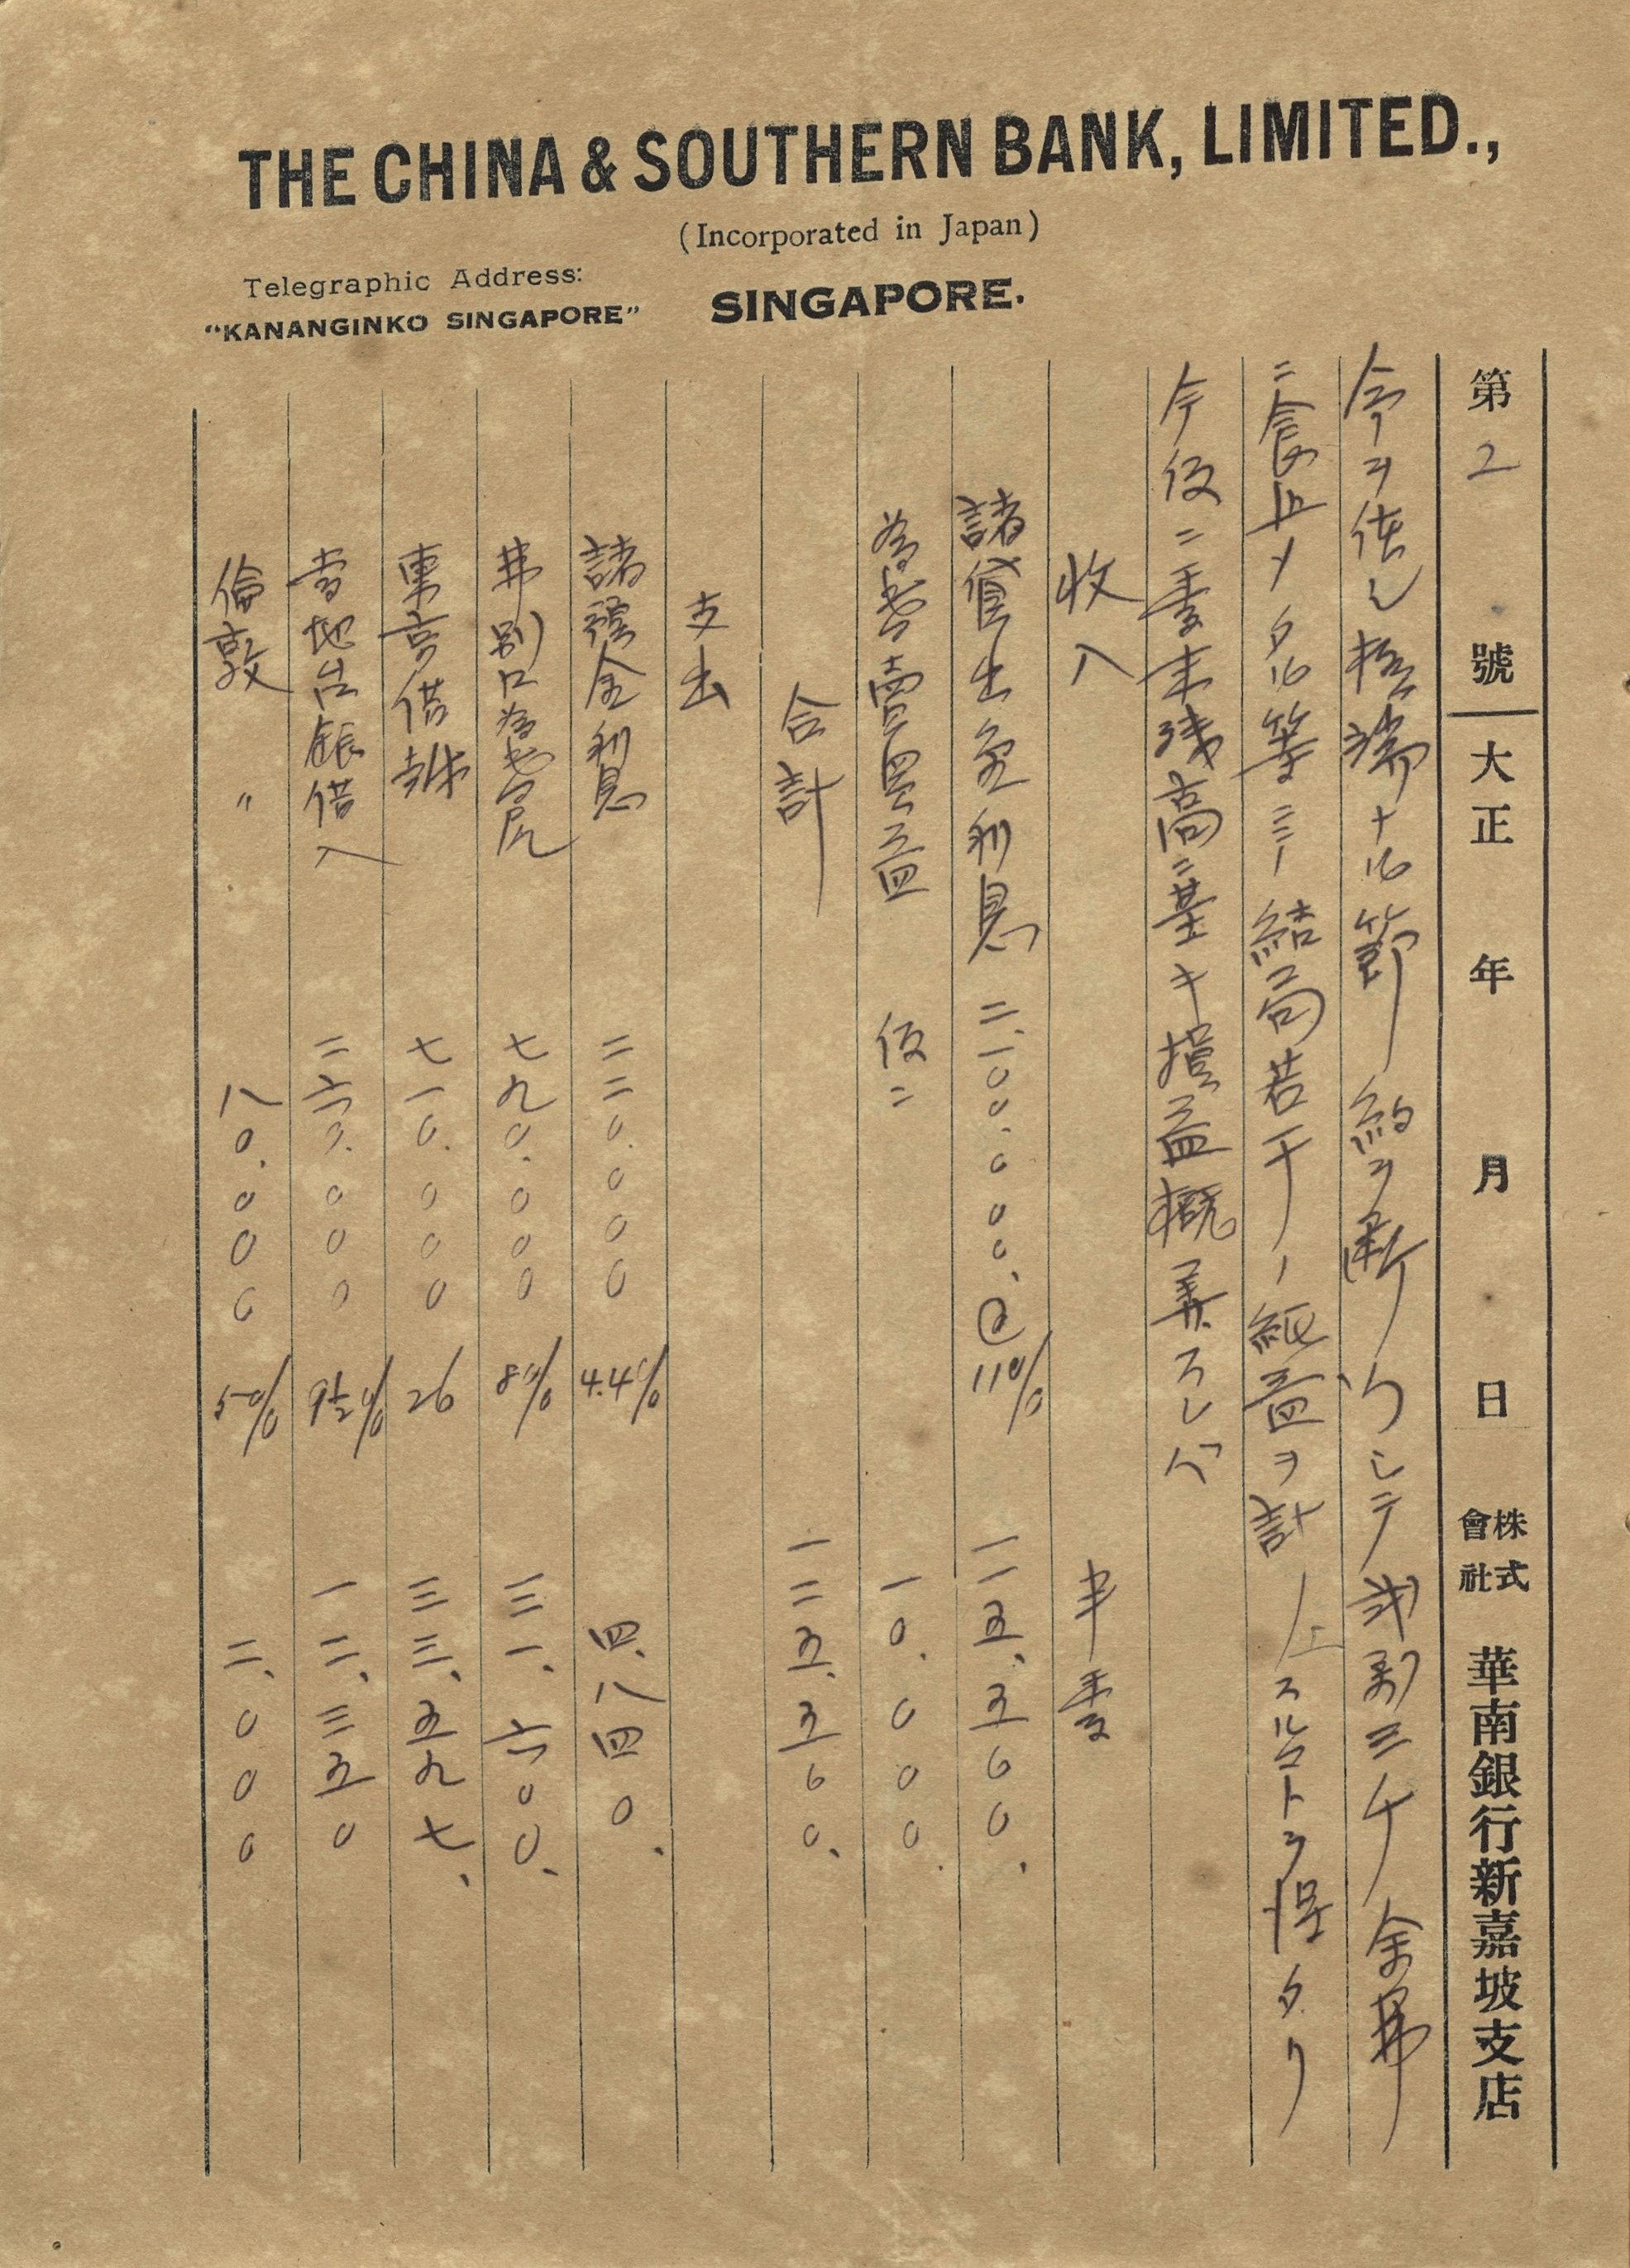 THE CHINA & SOUTHERN BANK, LIMITED.,
(Incorporated in Japan)
Telegraphic Address:
"KANANGINKO SINGAPORE"
SINGAPORE.
第2號 大正 年 月 日 株式會社 華南銀行新嘉坡支店
今ヲ侭シ極端ナル節約ヲ断行シテ 弐割三千余弗
ニ食止メタル等ニ 結局若干ノ純益ヲ計上スルコトヲ得タリ
今仮ニ季末残高ニ基キ損益概算スレバ
収入 半季
諸貸出金利息 二、一〇〇.〇〇〇、@11% 一一五、五〇〇、
為替売買益 仮ニ 一〇、〇〇〇.
合計 一二五、五〇〇、
支出
諸預金利息 二二〇.〇〇〇 4.4% 四、八四〇、
弗別口為替尻 七九〇.〇〇〇 8% 三一、六〇〇、
東京借 七一〇.〇〇〇 26 三三、五九七、
当地台銀借入 二六〇.〇〇〇 9½% 一二、三五〇
倫敦 〃 八〇.〇〇〇 5% 二、〇〇〇